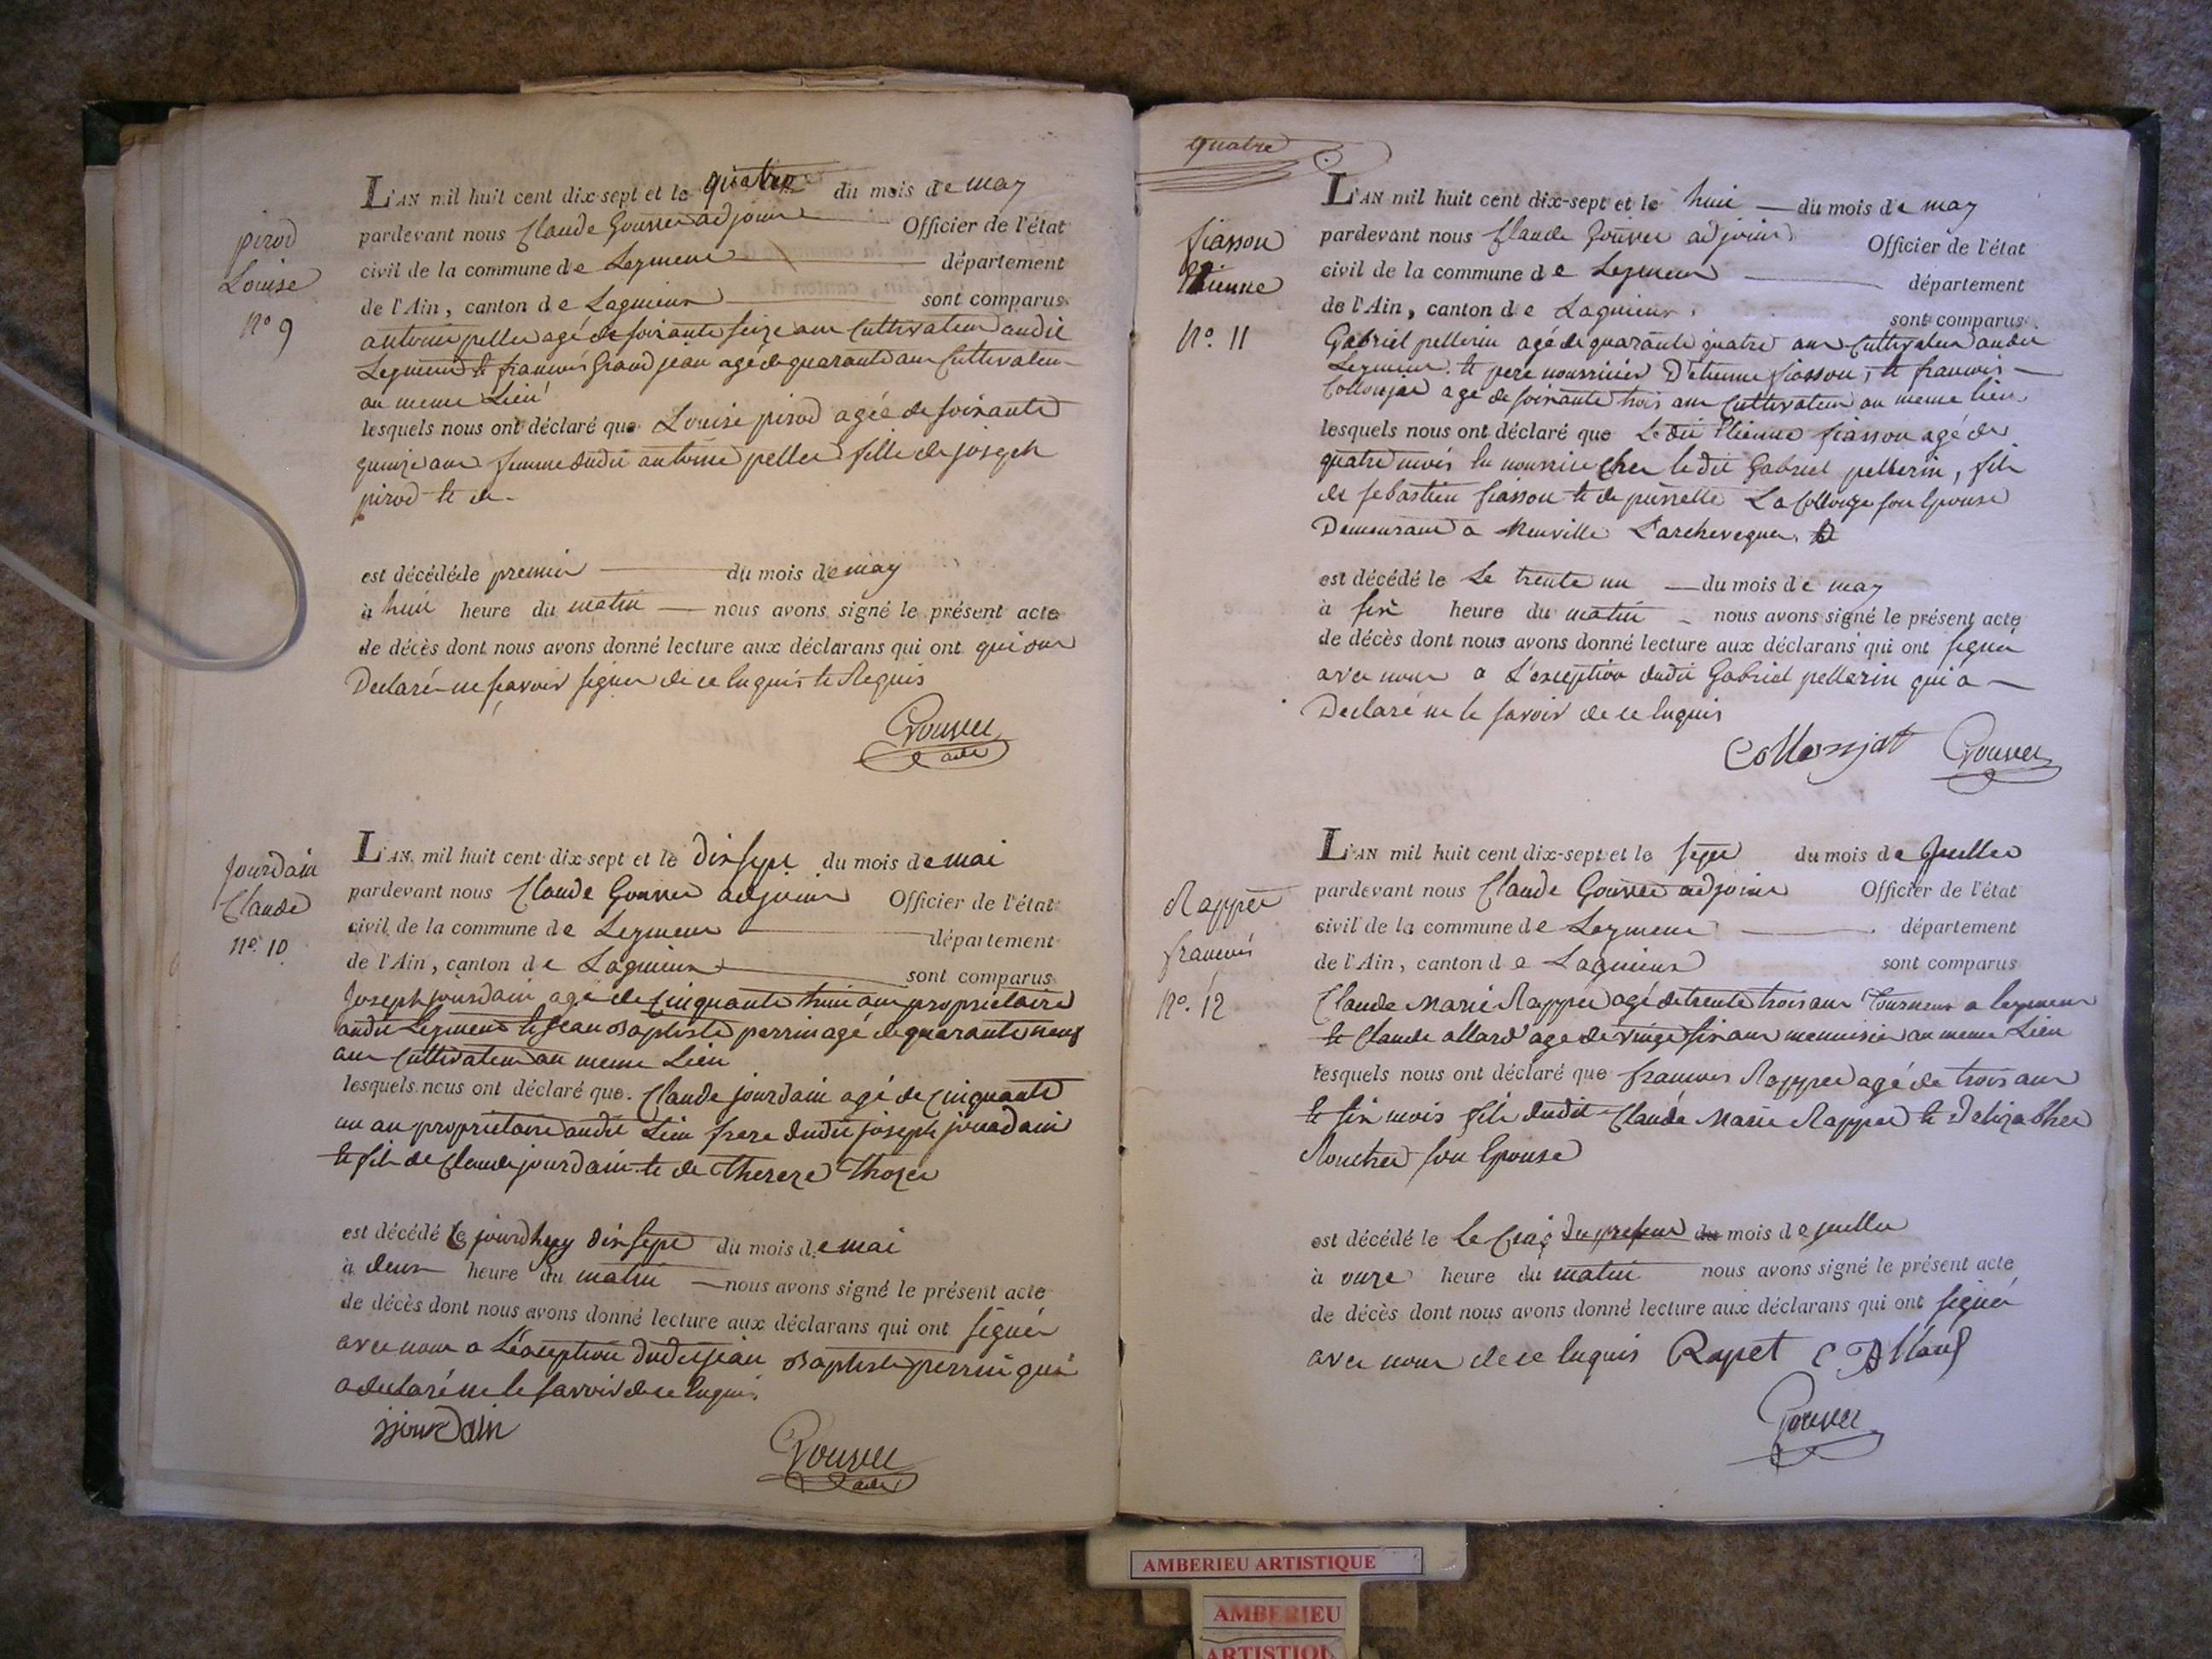 pirod
Louise
N° 9
L'AN mil huit cent dix-sept et le quatre du mois de may
pardevant nous Claude Gouvee adjoint Officier de l'état
civil de la commune de Leyment département
de l'Ain, canton de Lagnieux sont comparus
antoine pellet agé de soixante seize ans Cultivateur audit
Leyment et francois Grandjean agé de quarante ans Cultivateur
au meme Lieu
lesquels nous ont déclaré que Louise pirod agée de soixante
quinze ans femme dudit antoine pellet fille de joseph
pirod et de
est décédée le premier du mois de may
à huit heure du matin nous avons signé le présent acte
de décès dont nous avons donné lecture aux déclarans qui ont qui ont
Declaré ne sçavoir signer de ce Enquis et Requis
Jourdain
Claude
N° 10
L'AN mil huit cent dix-sept et le dix sept du mois de mai
pardevant nous Claude Gouvee adjoint Officier de l'état
civil de la commune de Leyment département
de l'Ain, canton de Lagnieux sont comparus
Joseph jourdain agé de Cinquante huit ans propriétaire
audit Leyment et Jean Baptiste perrin agé de quarante neuf
ans Cultivateur au meme Lieu
lesquels nous ont déclaré que Claude jourdain agé de Cinquante
un an propriétaire audit Lieu frere dudit joseph jourdain
et fils de Claude jourdain et de Thereze
est décédé le jourdhuy dix sept du mois de mai
à deux heure du matin nous avons signé le présent acte
de décès dont nous avons donné lecture aux déclarans qui ont signé
avec nous a L'exception dudit jean Baptiste perrin qui
a declaré ne le savoir de ce Enquis
jjourdain
quatre
fiasson
Etienne
N° 11
L'AN mil huit cent dix-sept et le huit du mois de may
pardevant nous Claude Gouvee adjoint Officier de l'état
civil de la commune de Leyment département
de l'Ain, canton de Lagnieux sont comparus
Gabriel pellerin agé de quarante quatre ans Cultivateur audit
Leyment et pere nourricier D'etienne fiasson, et francois
Collonjat agé de soixante trois ans Cultivateur au meme lieu
lesquels nous ont déclaré que Le dit Etienne fiasson agé de
quatre mois En nourrice chez le dit Gabriel pellerin, fils
de sebastien fiasson et de pierrette La Collonge son Epouse
Demeurant a Neuville L'archeveque
est décédé le Le trente un du mois de may
à six heure du matin nous avons signé le présent acte
de décès dont nous avons donné lecture aux déclarans qui ont signé
avec nous a L'exception dudit Gabriel pellerin qui a
Declaré ne le savoir de ce Enquis
Collonjat
Rappet
francois
N° 12
L'AN mil huit cent dix-sept et le sept du mois de Juillet
pardevant nous Claude Gouvee adjoint Officier de l'état
civil de la commune de Leyment département
de l'Ain, canton de Lagnieux sont comparus
Claude Marie Rappet agé de trente trois ans Tourneur a leyment
et Claude allard agé de vingt six ans menuisier au meme Lieu
lesquels nous ont déclaré que francois Rappet agé de trois ans
et six mois fils dudit Claude Marie Rappet et D'elizabhet
son Epouse
est décédé le Le Cinq du présent mois de juillet
à onze heure du matin nous avons signé le présent acte
de décès dont nous avons donné lecture aux déclarans qui ont signé
avec nous de ce Enquis Rapet C Allard
AMBERIEU ARTISTIQUE
AMBERIEU
ARTISTIQU